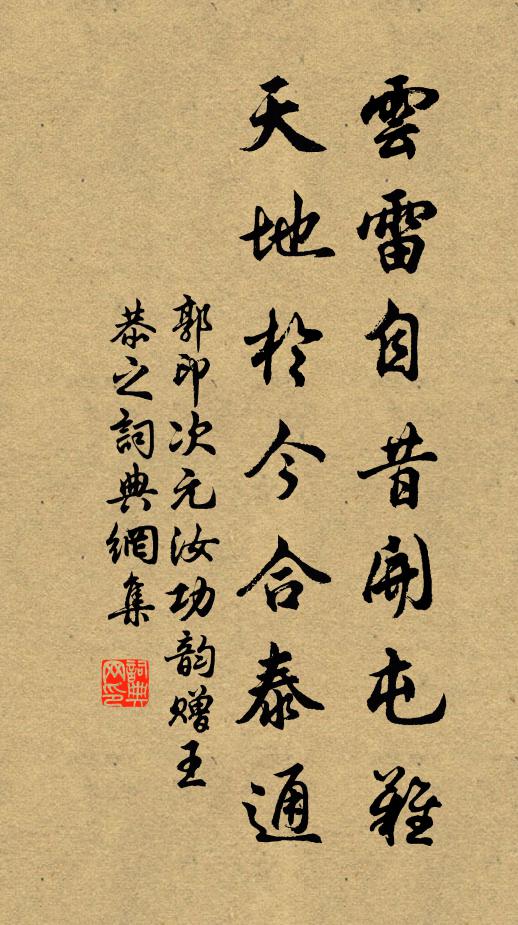 雲雷自昔開屯難
天地於今合泰通
郭印次元汝功韵贈王
恭之詞典網集
詞典网印